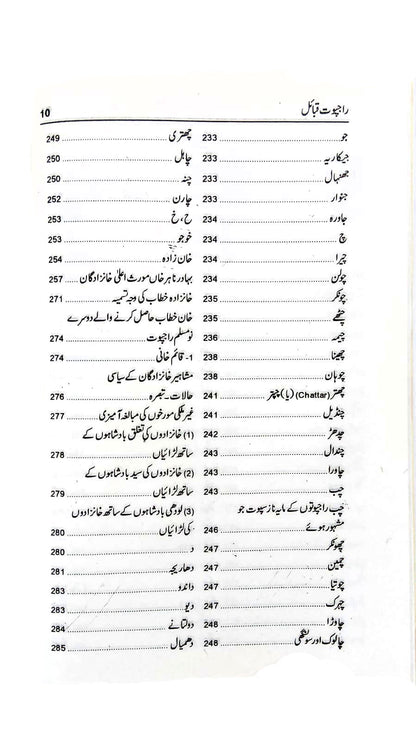 راجپوت قبائل 10
جو 233
جیکاریہ 233
جھنہال 233
جنوار 233
جاورہ 234
چ 234
چیرا 234
چولن 234
چونگر 235
چٹھے 235
چیمہ 236
چھینا 238
چوہان 238
چھتر (Chattar) (یا) چہتر 241
چندیل 241
چدھڑ 242
چندال 243
چاورا 243
چب 243
چب راجپوتوں کے مایہ ناز سپوت جو
مشہور ہوئے 246
چھونگر 247
چمین 247
چوتیا 247
چہرک 247
چاوڑا 248
چالوک اور سولنکھی 248
چھتری 249
چاہل 250
چنہ 250
چارن 252
ح، خ 253
خوجو 253
خان زادہ 254
بہادر ناہر خاں مورث اعلیٰ خانزادگان 257
خانزادہ خطاب کی وجہ تسمیہ 271
خان خطاب حاصل کرنے والے دوسرے
نو مسلم راجپوت 274
1- قائم خانی 274
مشاہیر خانزادگان کے سیاسی
حالات - تبصرہ 276
غیر ملکی مورخوں کی مبالغہ آمیزی 277
(1) خانزادوں کی تغلق بادشاہوں کے
ساتھ لڑائیاں 278
(2) خانزادوں کی سید بادشاہوں کے
ساتھ لڑائیاں 279
(3) لودھی بادشاہوں کے ساتھ خانزادوں
کی لڑائیاں 280
د 280
دھاریجہ 281
داندو 283
دیو 283
دولتانے 284
دھمیال 285